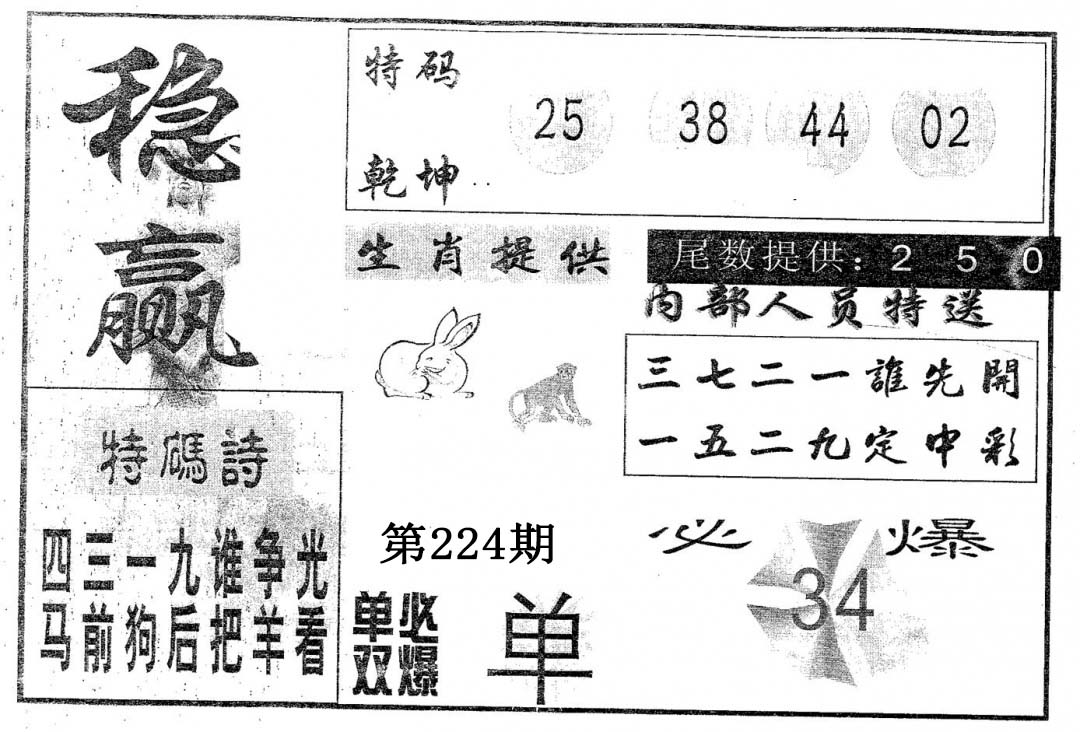 稳
赢
特码
乾坤
25 38 44 02
生肖提供
尾数提供: 2 5 0
内部人员特送
三七二一誰先開
一五二九定中彩
特碼詩
四三一九谁争光
马前狗后把羊看
第224期
单双
必爆
单
必爆
34